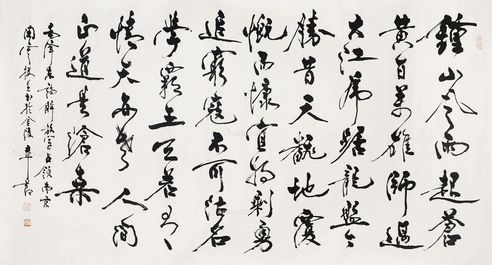 鍾山風雨起蒼
黄百萬雄師過
大江虎踞龍盤今
勝昔天翻地覆
慨而慷宜將剩勇
追窮寇不可沽名
學霸王天若有
情天亦老人間
正道是滄桑
毛澤東詩解放軍占領南京
書於金陵